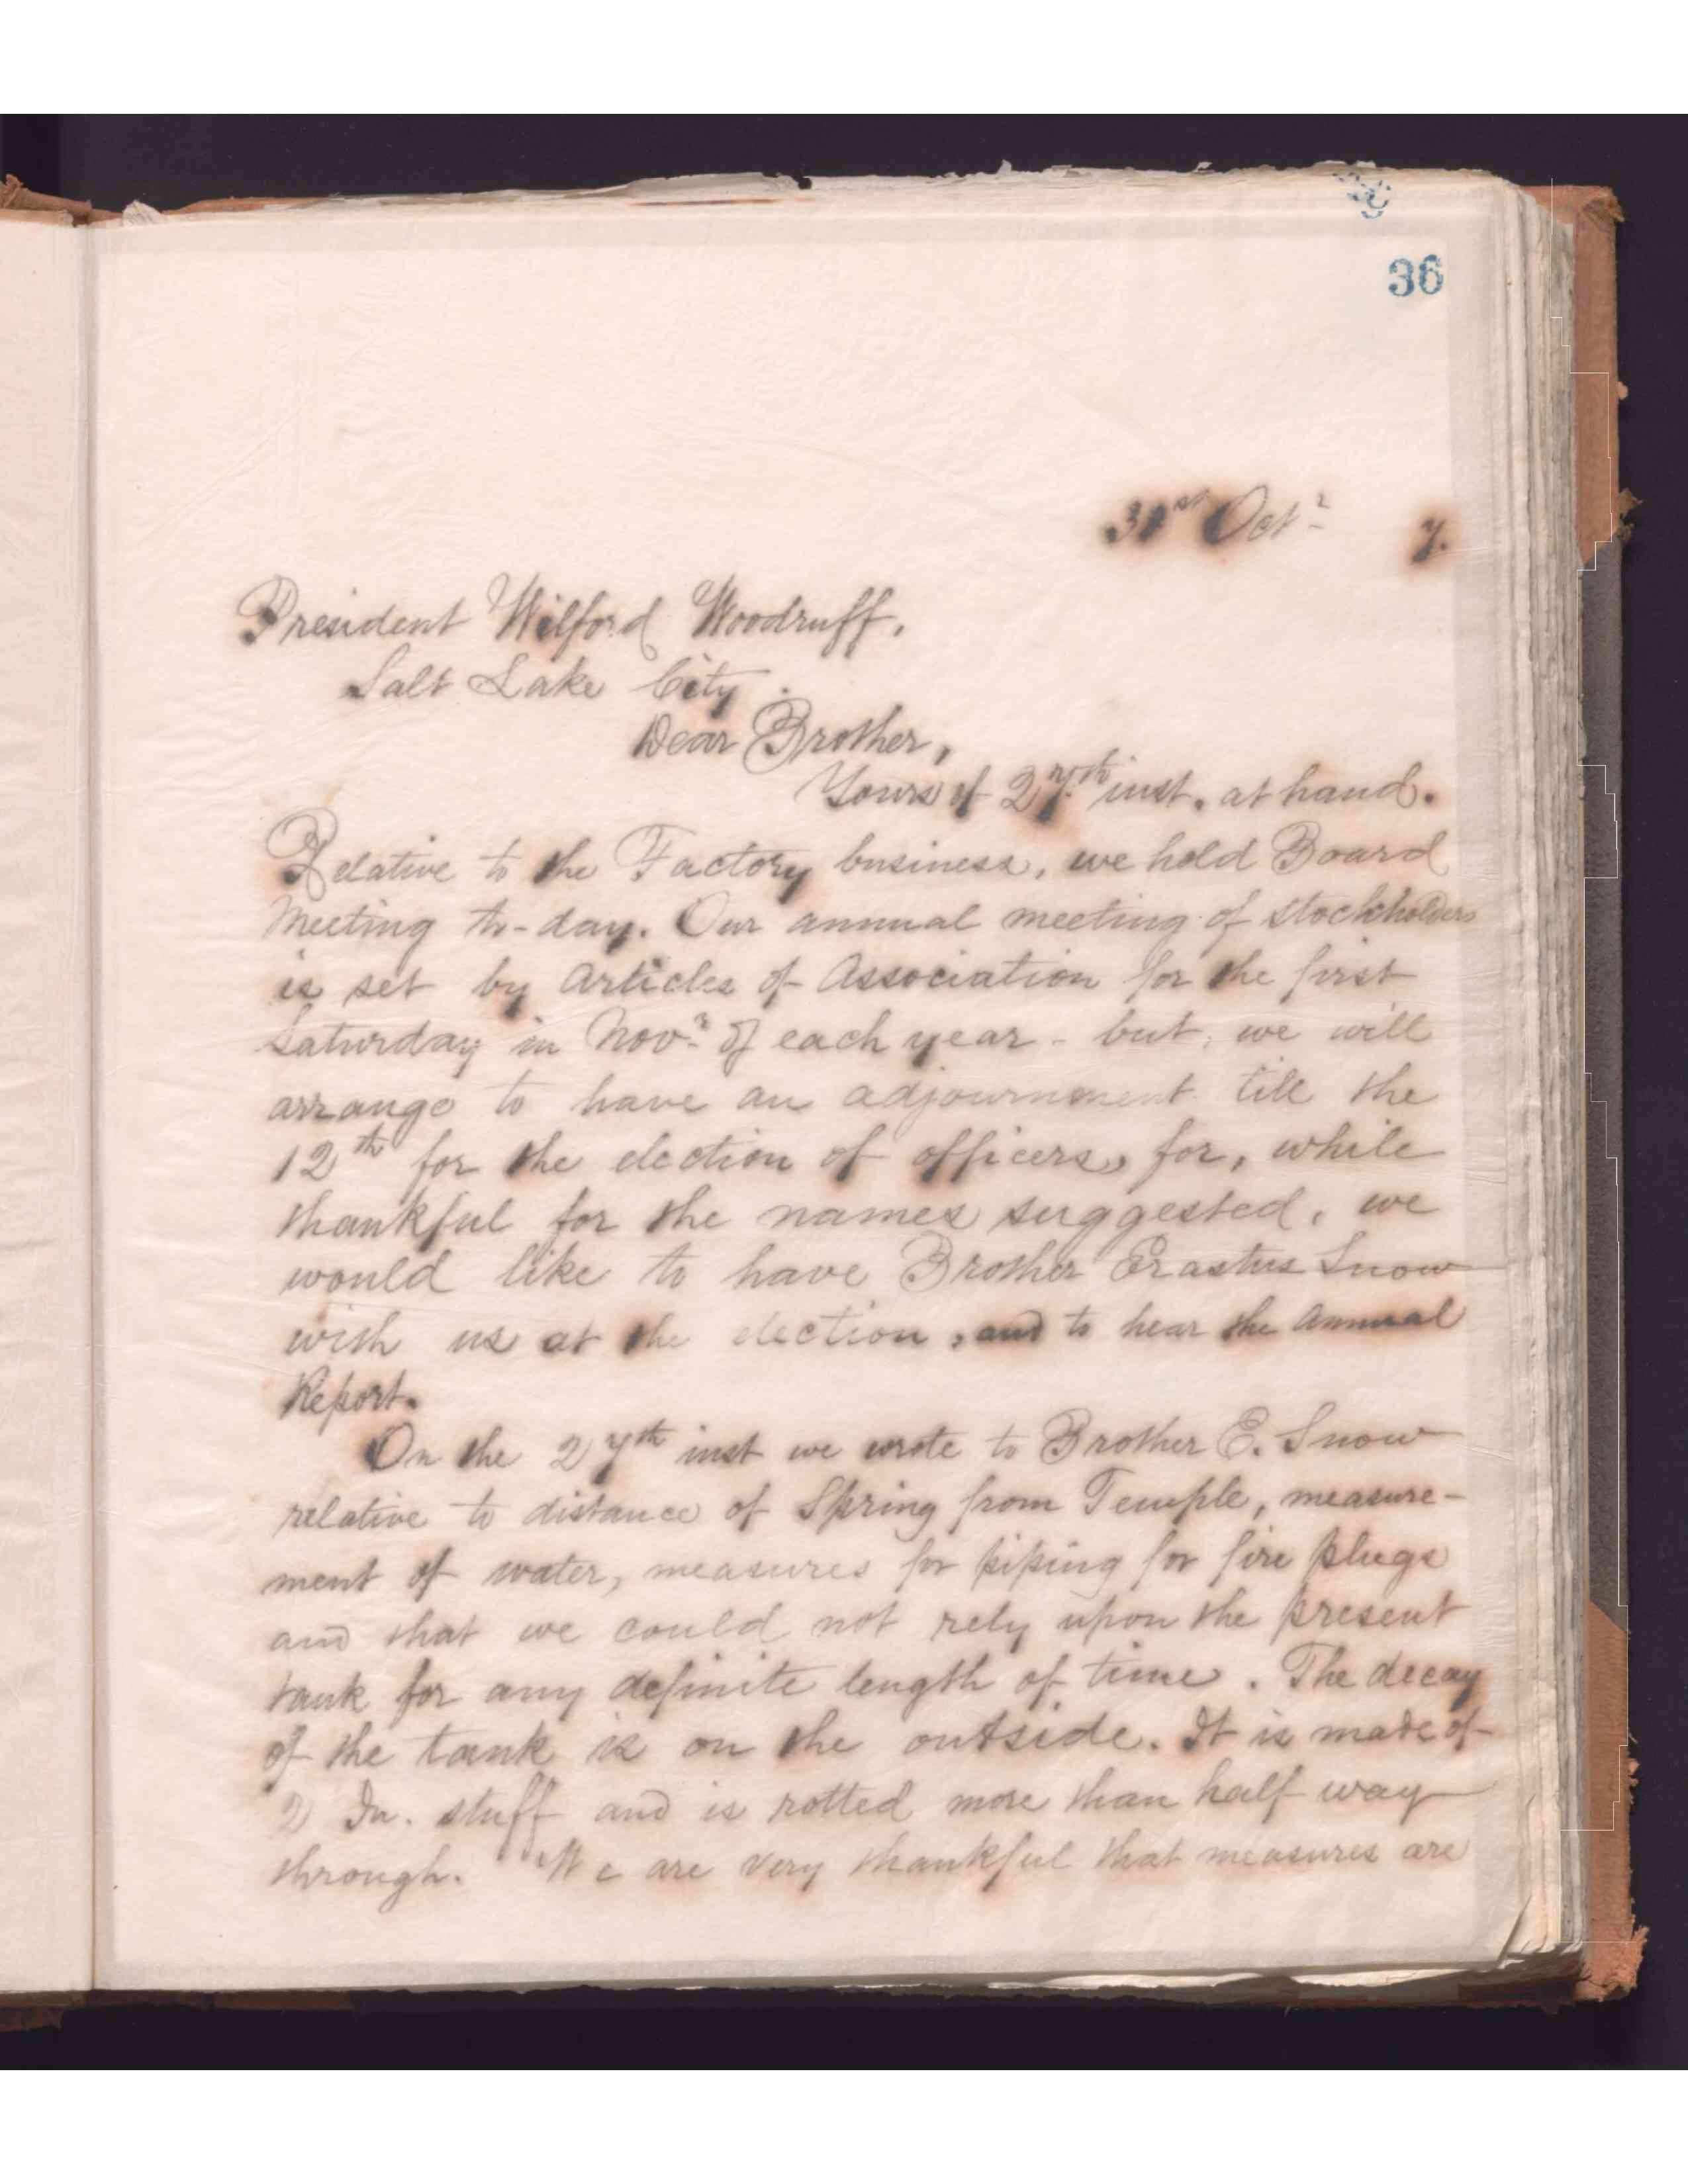 36
31st Octr 7.
President Wilford Woodruff,
Salt Lake City.
Dear Brother,
Yours of 27th inst. at hand.
Relative to the Factory business, we hold Board
Meeting to-day. Our annual meeting of stockholders
is set by Articles of Association for the first
Saturday in Novr of each year - but, we will
arrange to have an adjournment till the
12th for the election of officers, for, while
thankful for the names suggested, we
would like to have Brother Erastus Snow
with us at the election, and to hear the Annual
Report.
On the 27th inst we wrote to Brother E. Snow
relative to distance of Spring from Temple, measure-
ment of water, measures for piping for fire plugs
and that we could not rely upon the present
tank for any definite length of time. The decay
of the tank is on the outside. It is made of
2 In. stuff and is rotted more than half way
through. We are very thankful that measures are